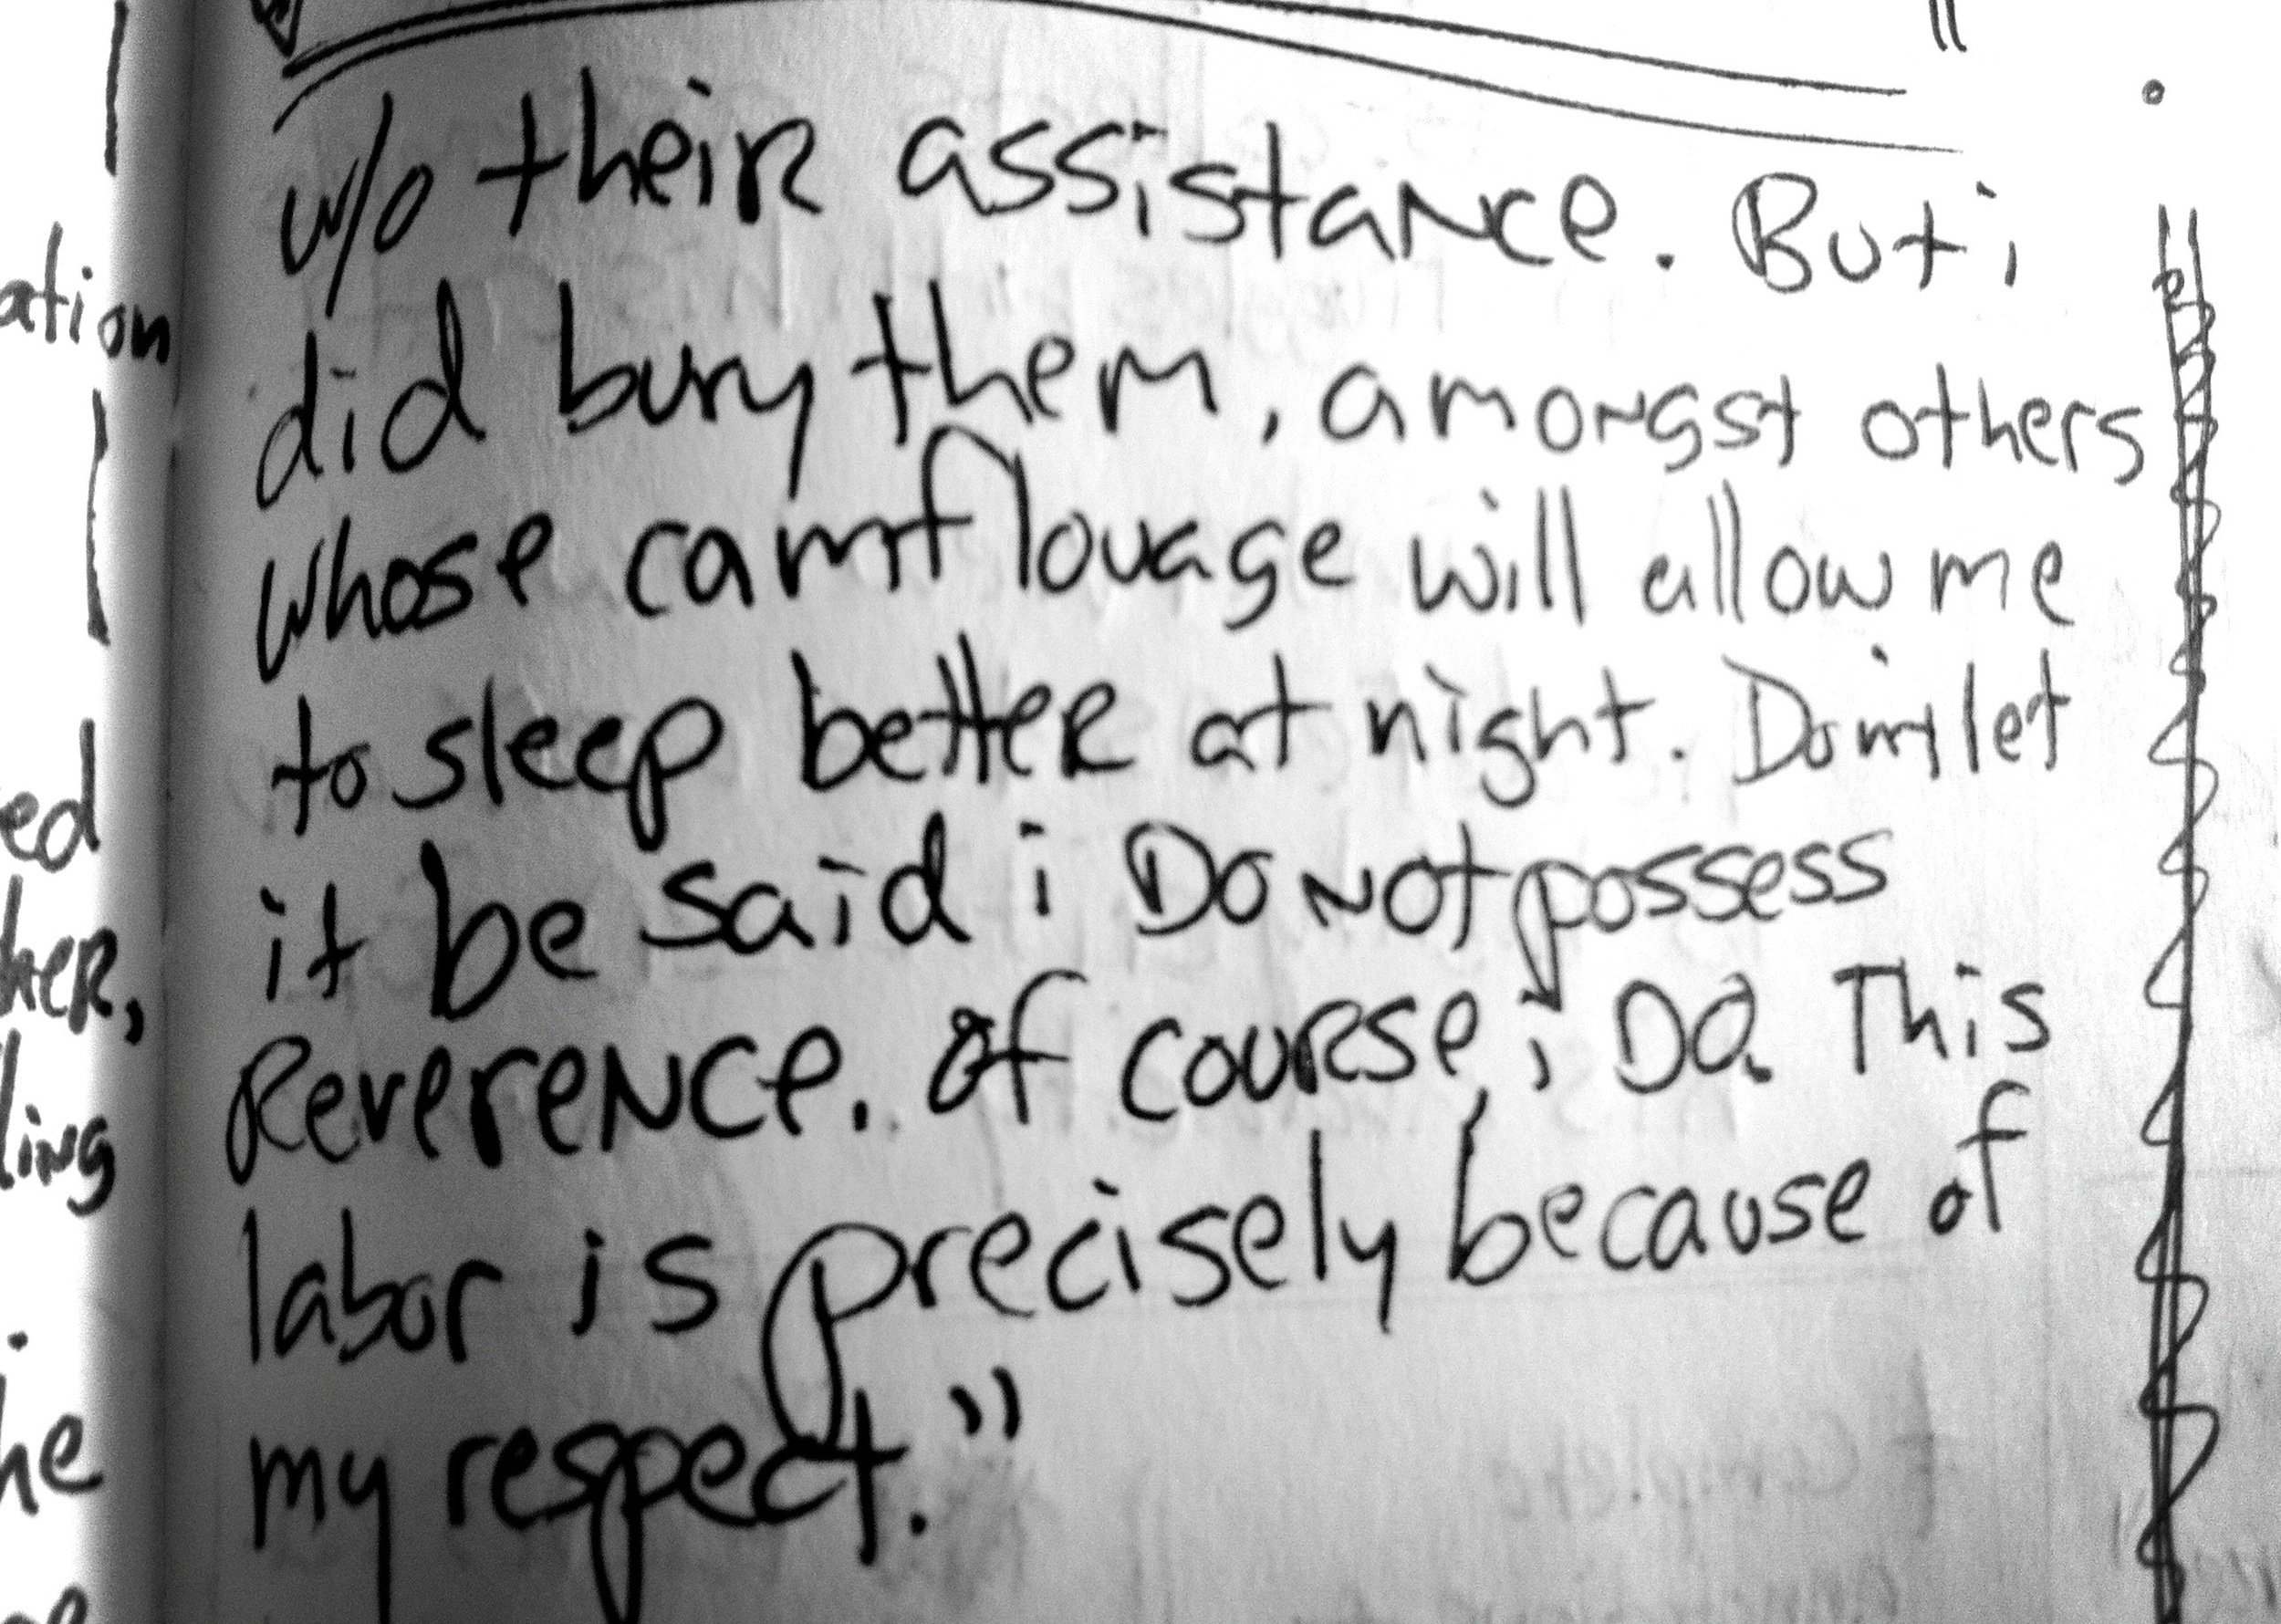 w/o their assistance. But i
did bury them, amongst others
whose camflouage will allow me
to sleep better at night. Don't let
it be said i Do Not possess
Reverence. of course, i Do. This
labor is precisely because of
my respect."
ation
ed
her,
ling
he